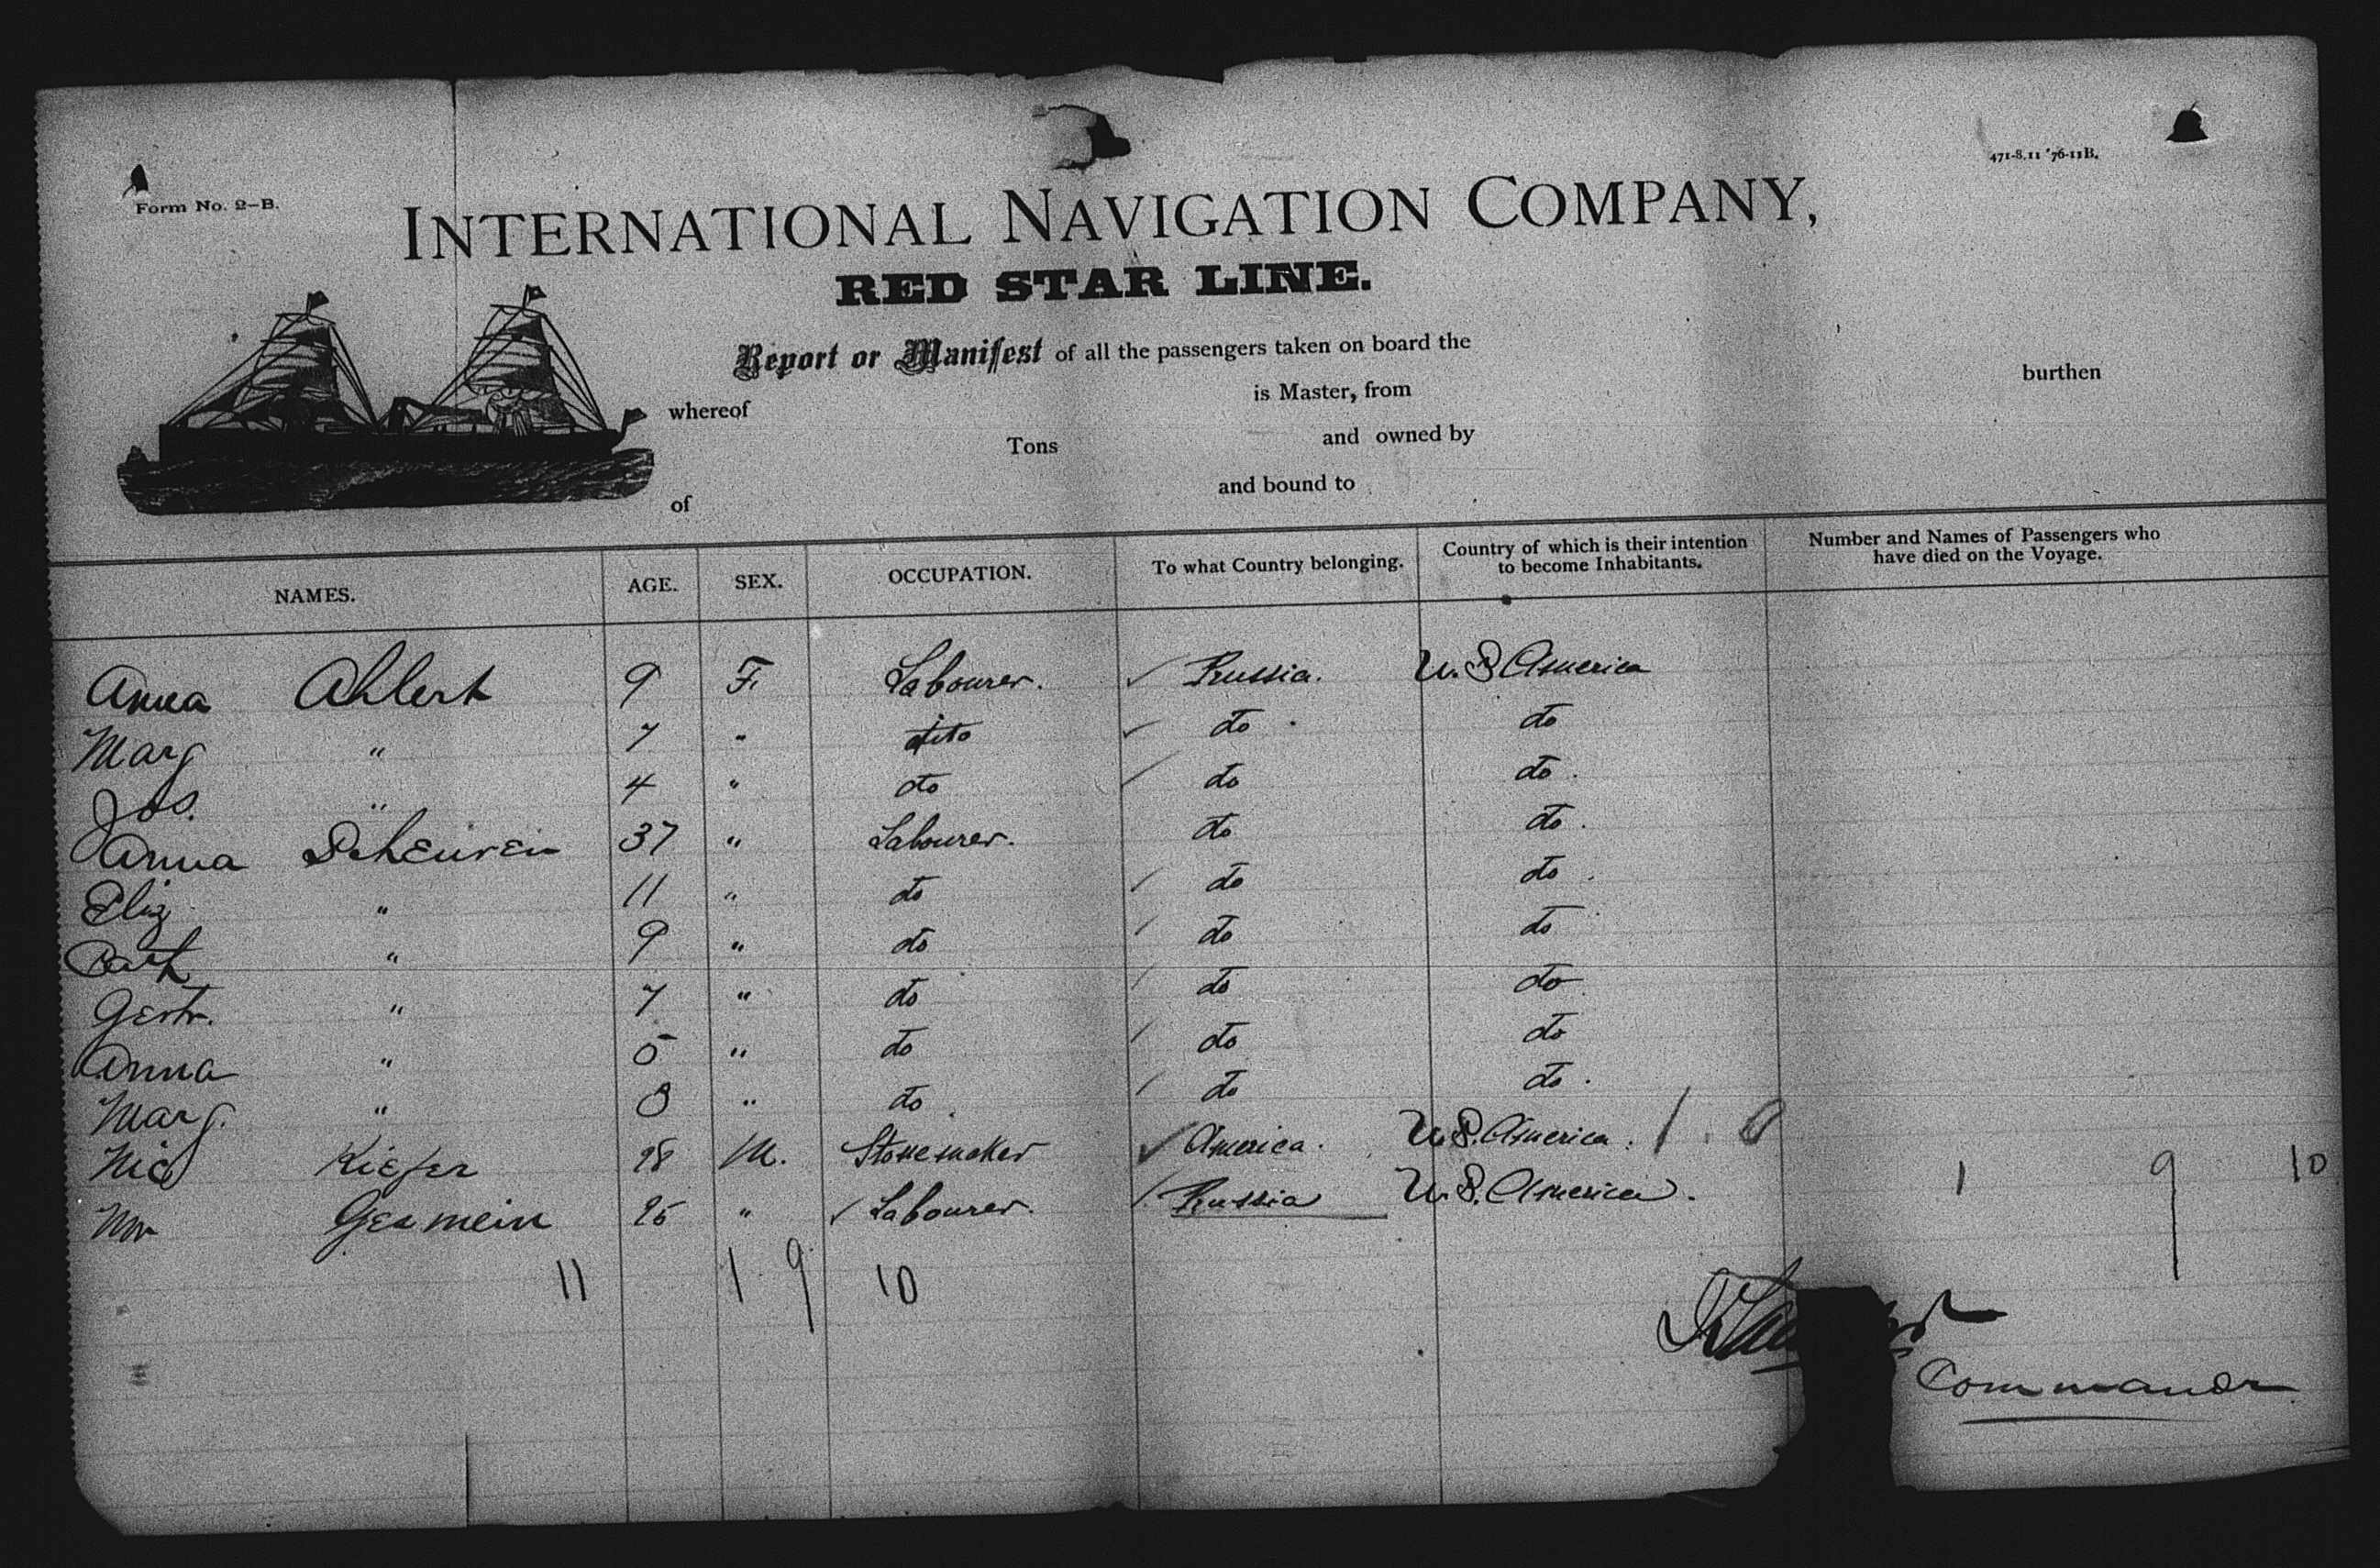 Form No. 2-B.
471-8,11 '76-11B.
INTERNATIONAL NAVIGATION COMPANY,
RED STAR LINE.
Report or Manifest of all the passengers taken on board the
whereof is Master, from burthen
Tons and owned by
of and bound to
NAMES. AGE. SEX. OCCUPATION. To what Country belonging. Country of which is their intention to become Inhabitants. Number and Names of Passengers who have died on the Voyage.
Anna Ahlert 9 F. Labourer. ✓ Russia. U.S. America
Marg " 7 " dito ✓ do do
Jos. " 4 " do ✓ do do.
Anna Scheuren 37 " Labourer. do do.
Eliz " 11 " do ✓ do do.
Cath " 9 " do ✓ do do
Gertr. " 7 " do ✓ do do
Anna " 5 " do ✓ do do
Marg. " 3 " do ✓ do do.
Nic Kiefer 28 M. ✓ America. U.S. America. 1. 0
Gesmein 25 " ✓ Labourer. ✓ Russia U.S. America. 1 9 10
11 1 9 10
Commandr